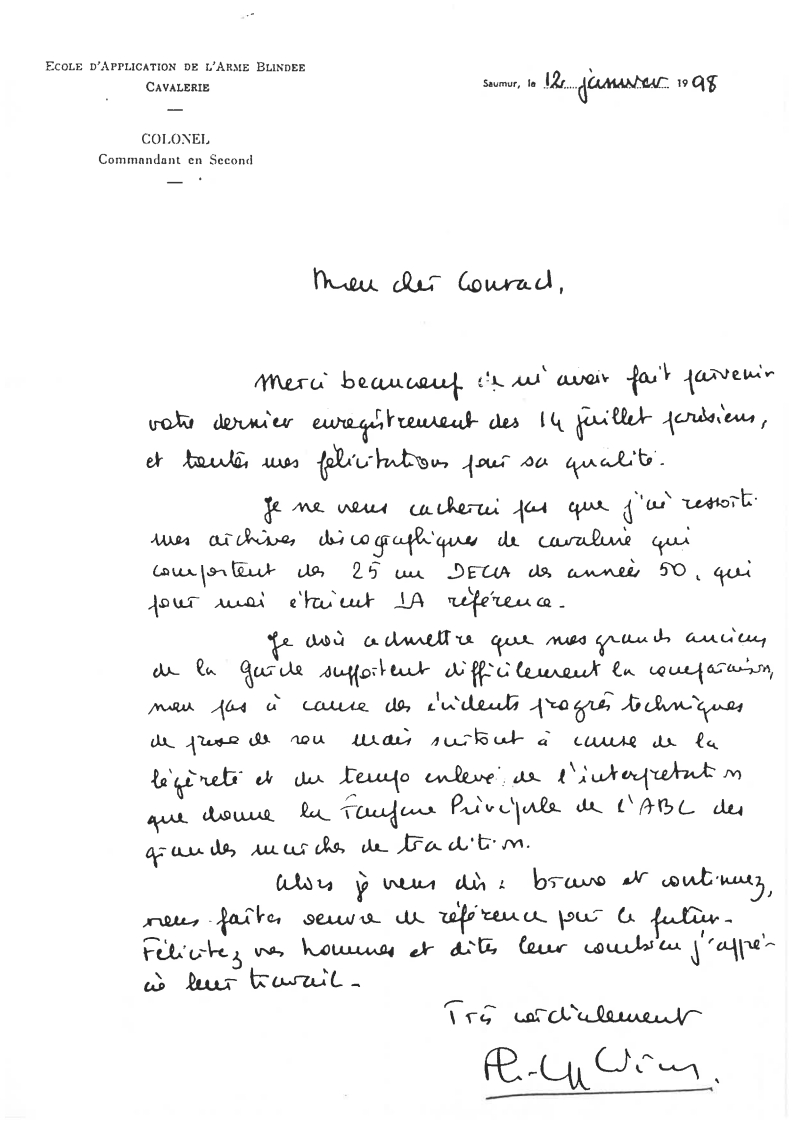 ECOLE D'APPLICATION DE L'ARME BLINDEE
CAVALERIE
Saumur, le 12 janvier 1998
COLONEL
Commandant en Second
Mon cher Conrad,
Merci beaucoup de m'avoir fait parvenir
votre dernier enregistrement des 14 juillet parisiens,
et toutes mes félicitations pour sa qualité.
Je ne vous cacherai pas que j'ai ressorti
mes archives discographiques de cavalerie qui
comportent des 25 cm DECCA des années 50, qui
pour moi étaient LA référence.
Je dois admettre que nos grands anciens
de la Garde supportent difficilement la comparaison,
non pas à cause des évidents progrès techniques
de prise de son mais surtout à cause de la
légèreté et du tempo enlevé de l'interprétation
que donne la Fanfare Principale de l'ABC des
grandes marches de tradition.
Alors je vous dis : bravo et continuez,
vous faites oeuvre de référence pour le futur.
Félicitez vos hommes et dites leur combien j'appré-
cie leur travail.
Très cordialement